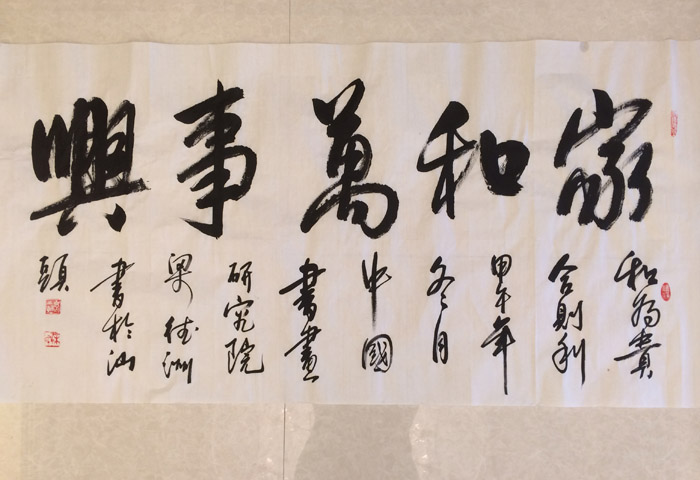 家和萬事興
和為貴
合則利
甲午年
冬月
中國
書畫
研究院
梁德洲
書於汕
頭